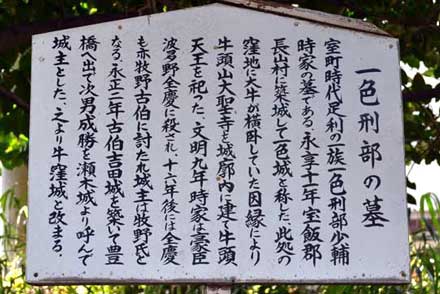 一色刑部の墓
室町時代足利の一族一色刑部少輔
時家の墓である。永享十一年宝飯郡
長山村に築城して一色城と称した。此処の
窪地に大牛が横臥していた因縁により
牛頭山大聖寺を城廓内に建て牛頭
天王を祀った。文明九年時家は豪臣
波多野全慶に殺され十六年後には全慶
も亦牧野古伯に討たれ城主は牧野氏と
なる。永正二年古伯吉田城を築いて豊
橋へ出で次男成勝を瀬木城より呼んで
城主とした。之より牛窪城と改まる.